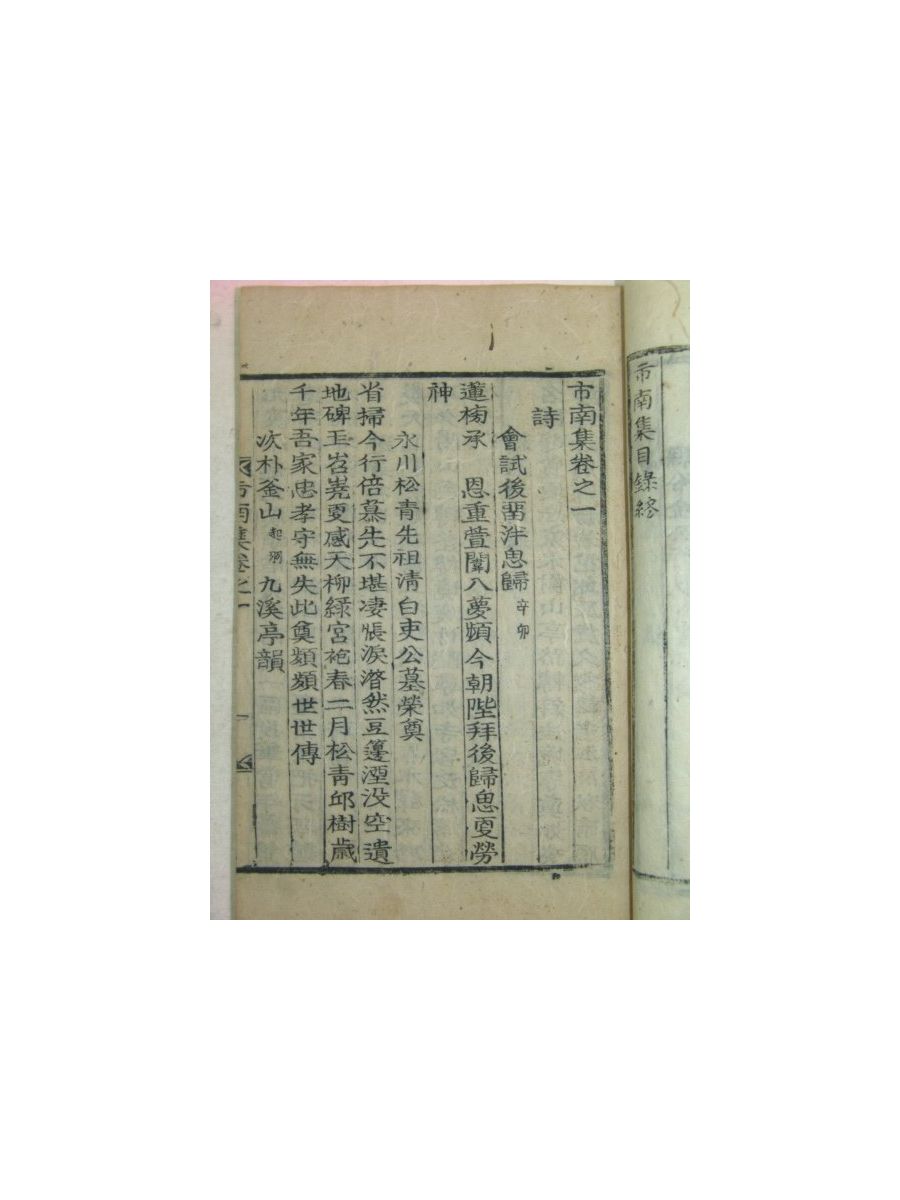 市南集目錄終
市南集卷之一
詩
會試後留泮思歸 辛卯
蓮榜承 恩重萱闈入夢頻今朝陛拜後歸思更勞
神
永川松青先祖淸白吏公墓榮奠
省掃今行倍慕先不堪凄悵淚潸然豆籩湮没空遺
地碑玉岧嶤更感天柳綠宮袍春二月松靑邱樹歲
千年吾家忠孝守無失此奠頻頻世世傳
次朴釜山 九溪亭韻
市南集卷之一 一